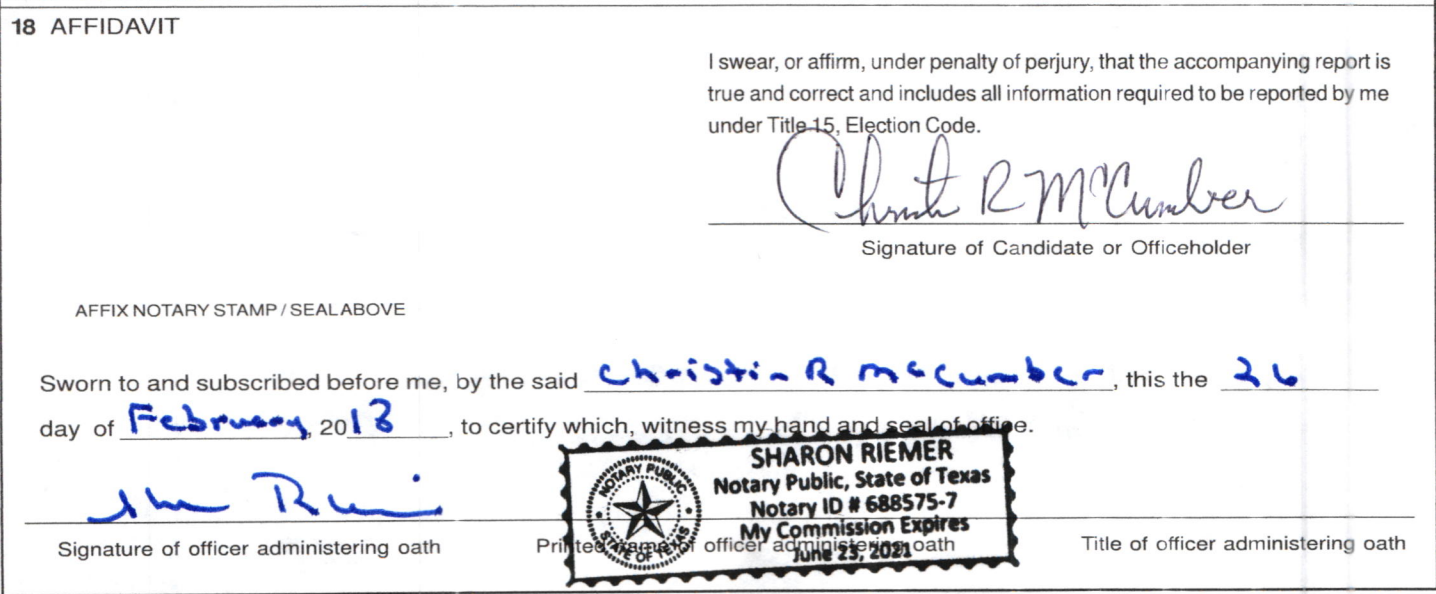 18 AFFIDAVIT
I swear, or affirm, under penalty of perjury, that the accompanying report is
true and correct and includes all information required to be reported by me
under Title 15, Election Code.
R McCumber
Signature of Candidate or Officeholder
AFFIX NOTARY STAMP / SEAL ABOVE
Sworn to and subscribed before me, by the said Christin R McCumber, this the 26
day of February, 2018, to certify which, witness my hand and seal of office.
SHARON RIEMER
Notary Public, State of Texas
Notary ID # 688575-7
My Commission Expires
June 23, 2021
NOTARY PUBLIC
STATE OF TEXAS
Signature of officer administering oath Printed name of officer administering oath Title of officer administering oath